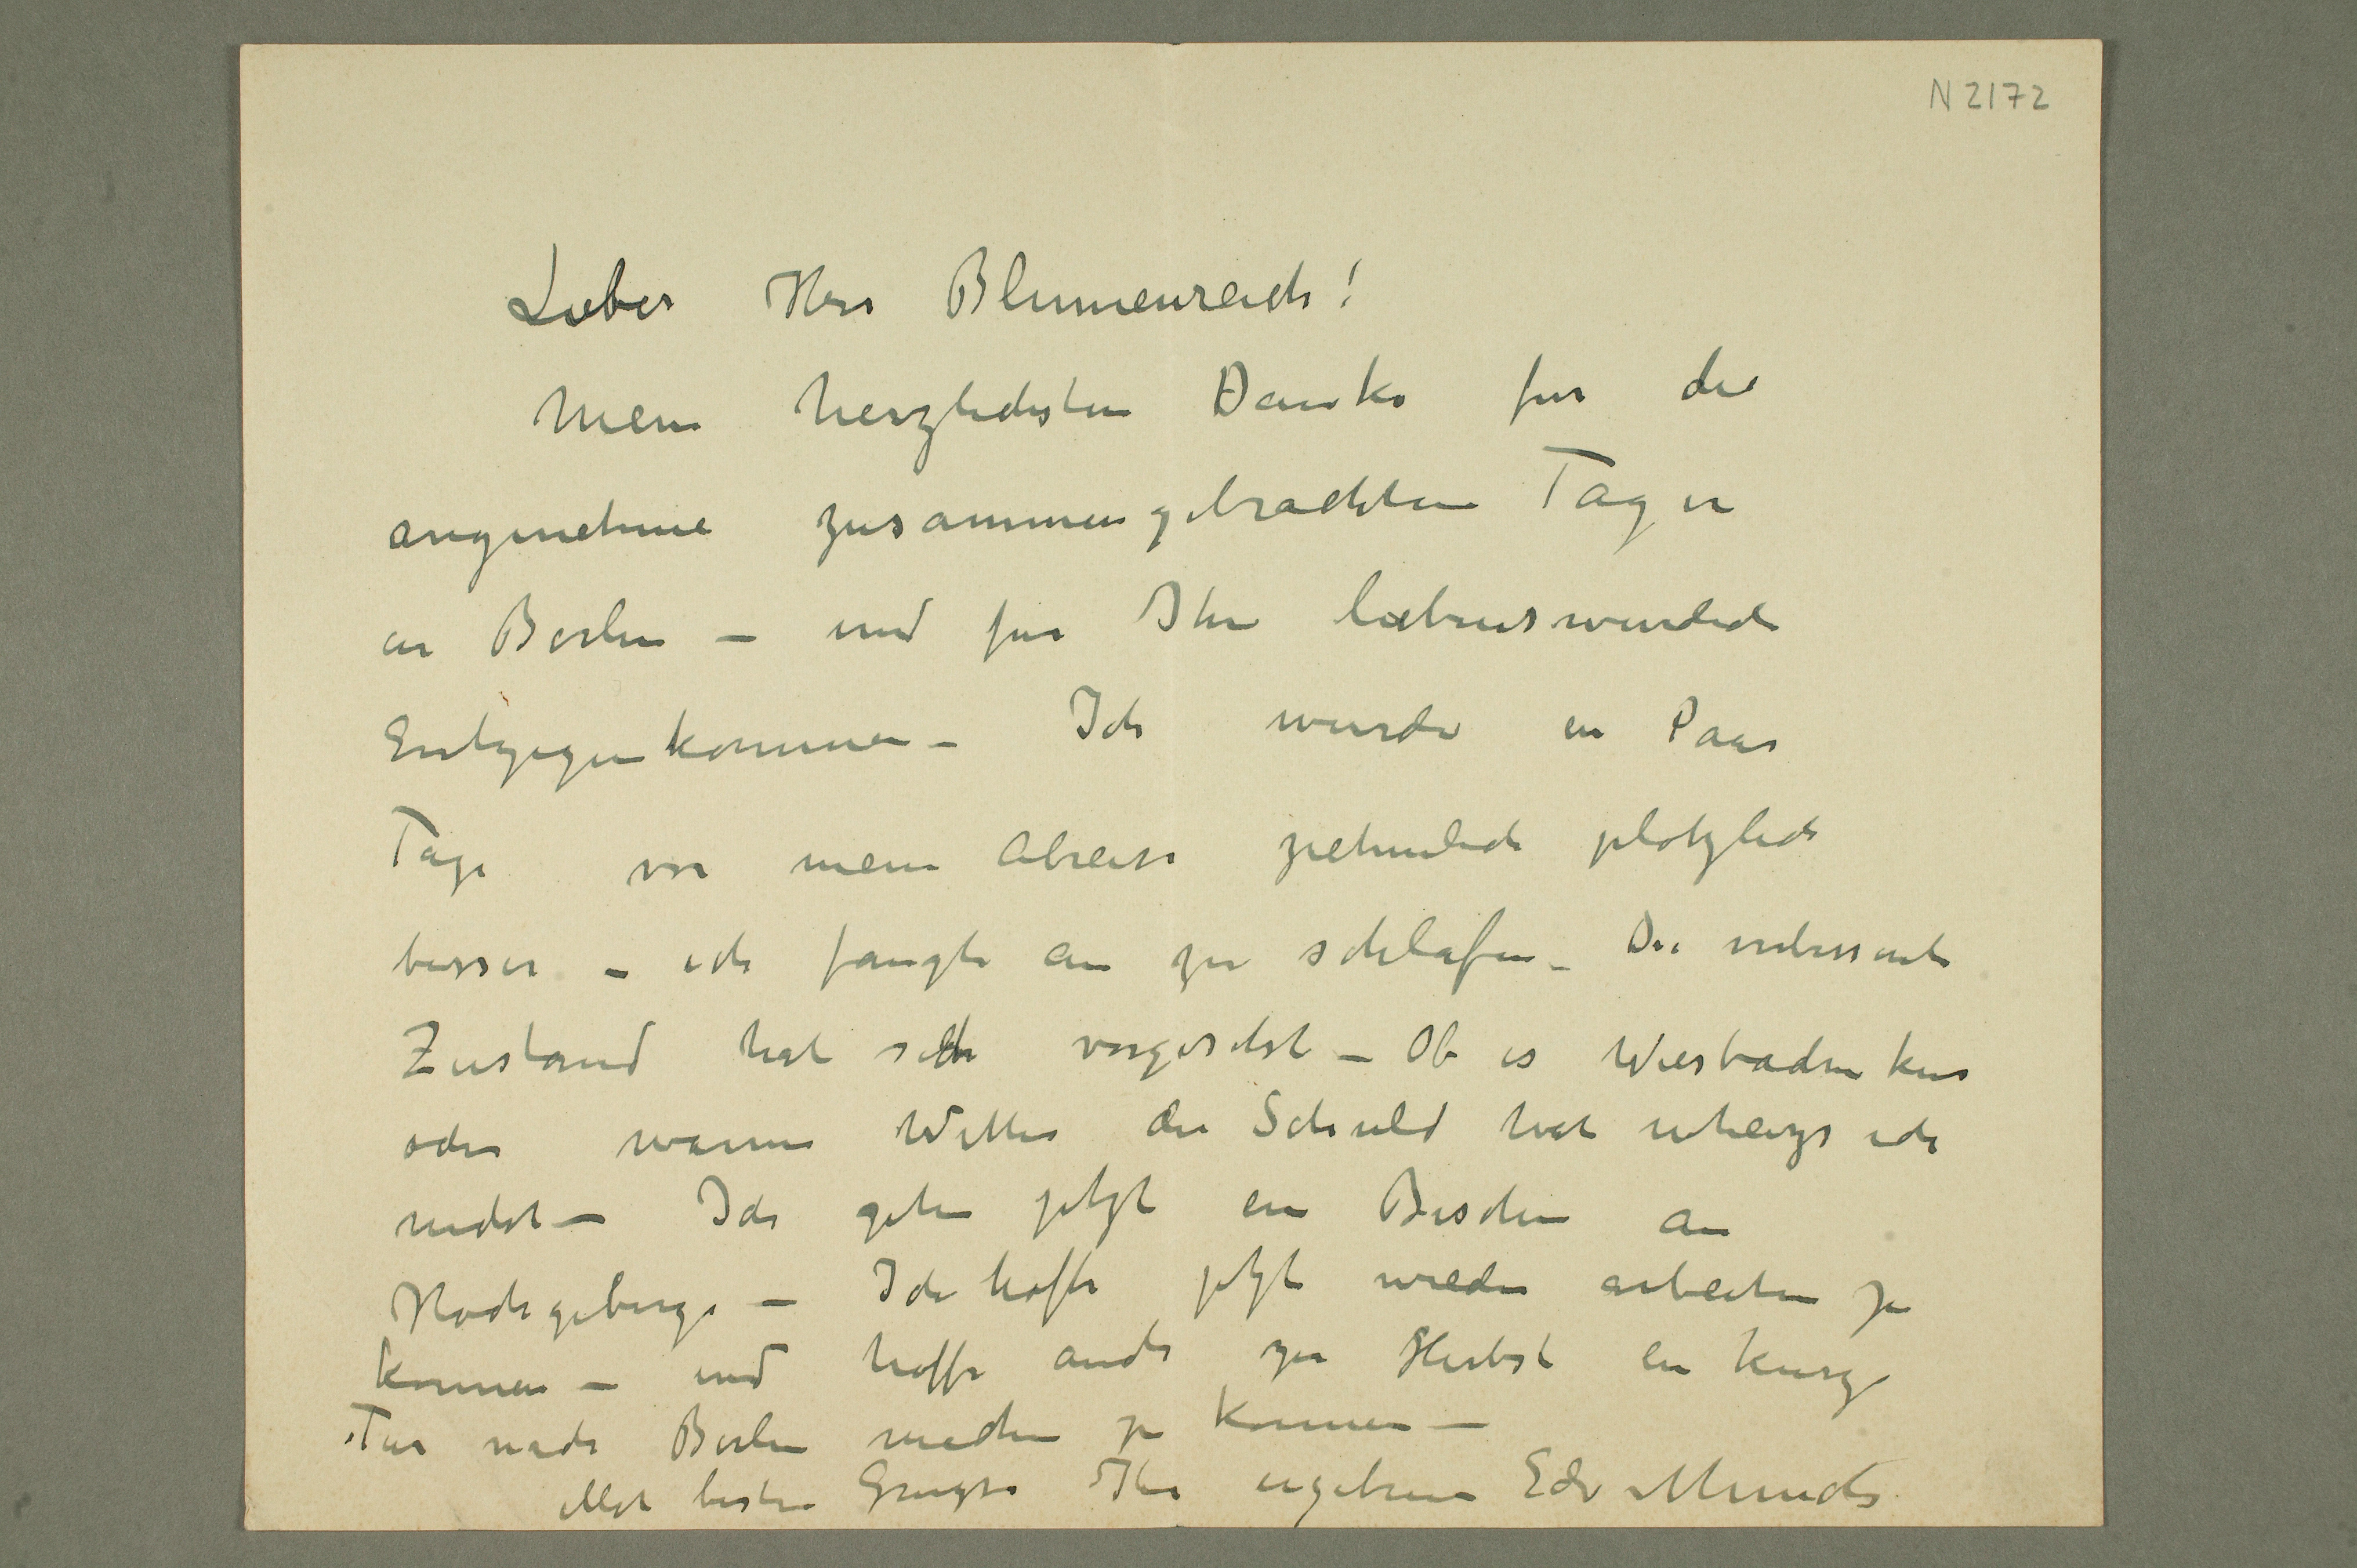 N 2172
Lieber Herr Blumenreich!
Mein herzlichsten Danke fur die
angenehme zusammengebrachten Tagen
in Berlin – und fur Ihr liebenswurdich
Entgegenkommen – Ich wurde ein Paar
Tage vor mein Abreise ziehmlich plotzlich
besser – ich fangte an zu schlafen – Die
Zustand hat sich – Ob es Wiesbadenkur
oder warme Wetter die Schuld hat ich
nicht – Ich gehe jetzt ein Bischen an
Hochgebirge – Ich hoffe jetzt wieder arbeiten zu
konnen – und hoffe auch zu Herbst ein kurze
Tur nach Berlin machen zu konnen –
Mit besten Grusse Ihr ergebene Edv Munch